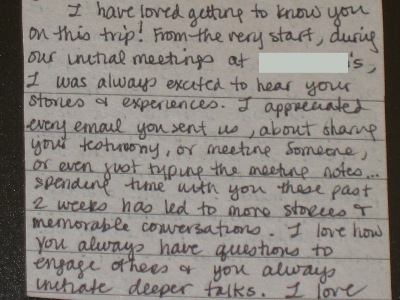 I have loved getting to know you
on this trip! From the very start, during
our initial meetings at 's,
I was always excited to hear your
stories & experiences. I appreciated
every email you sent us, about sharing
your testimony, or meeting someone,
or even just typing the meeting notes...
spending time with you these past
2 weeks has led to more stories &
memorable conversations. I love how
you always have questions to
engage others & you always
initiate deeper talks. I love